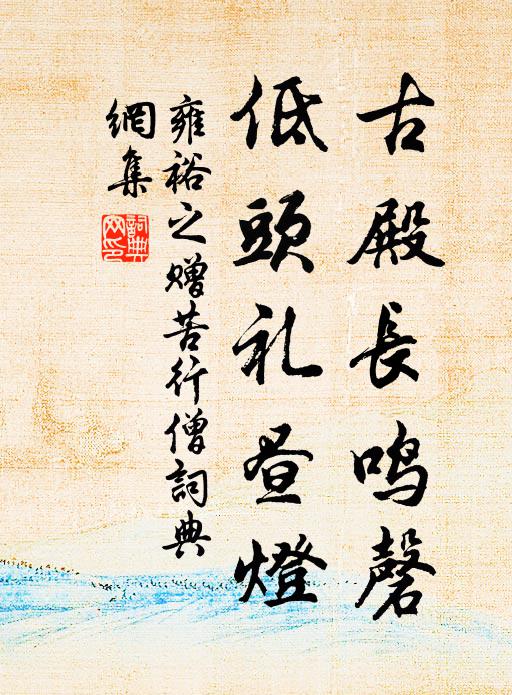 古殿長鳴磬
低頭礼昼燈
雍裕之贈苦行僧詞典
網集
詞典
网印